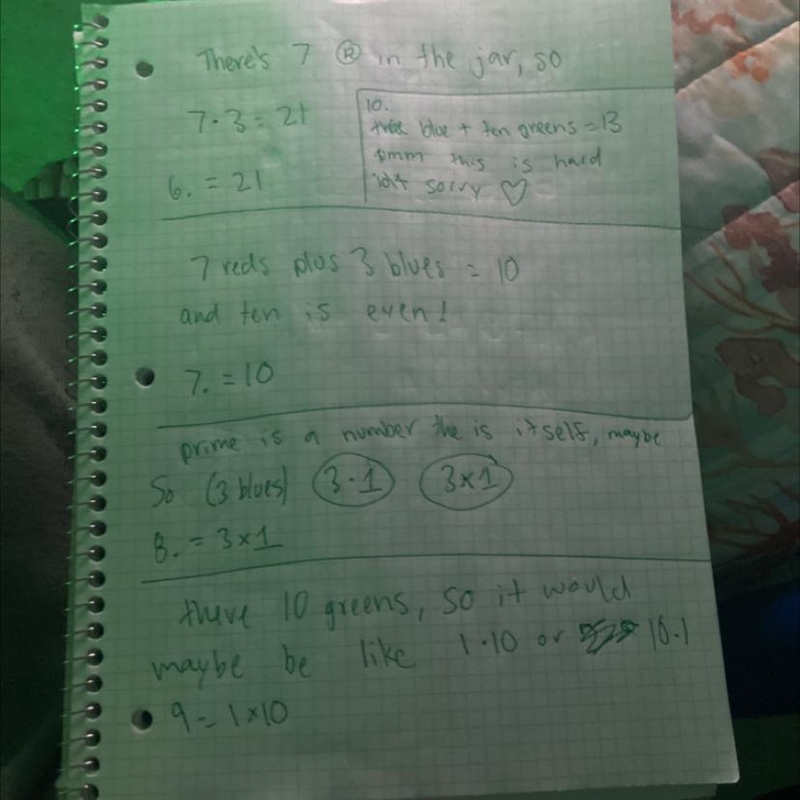 There's 7 Ⓡ in the jar, so
7 · 3 = 21
6. = 21
10.
blue + ten greens = 13
this is hard
sorry ♡
7 reds plus 3 blues = 10
and ten is even!
7. = 10
prime is a number the is itself, maybe
So (3 blues) 3 · 1 3 × 1
8. = 3 × 1
there 10 greens, so it would
maybe be like 1 · 10 or 10 · 1
9 = 1 × 10